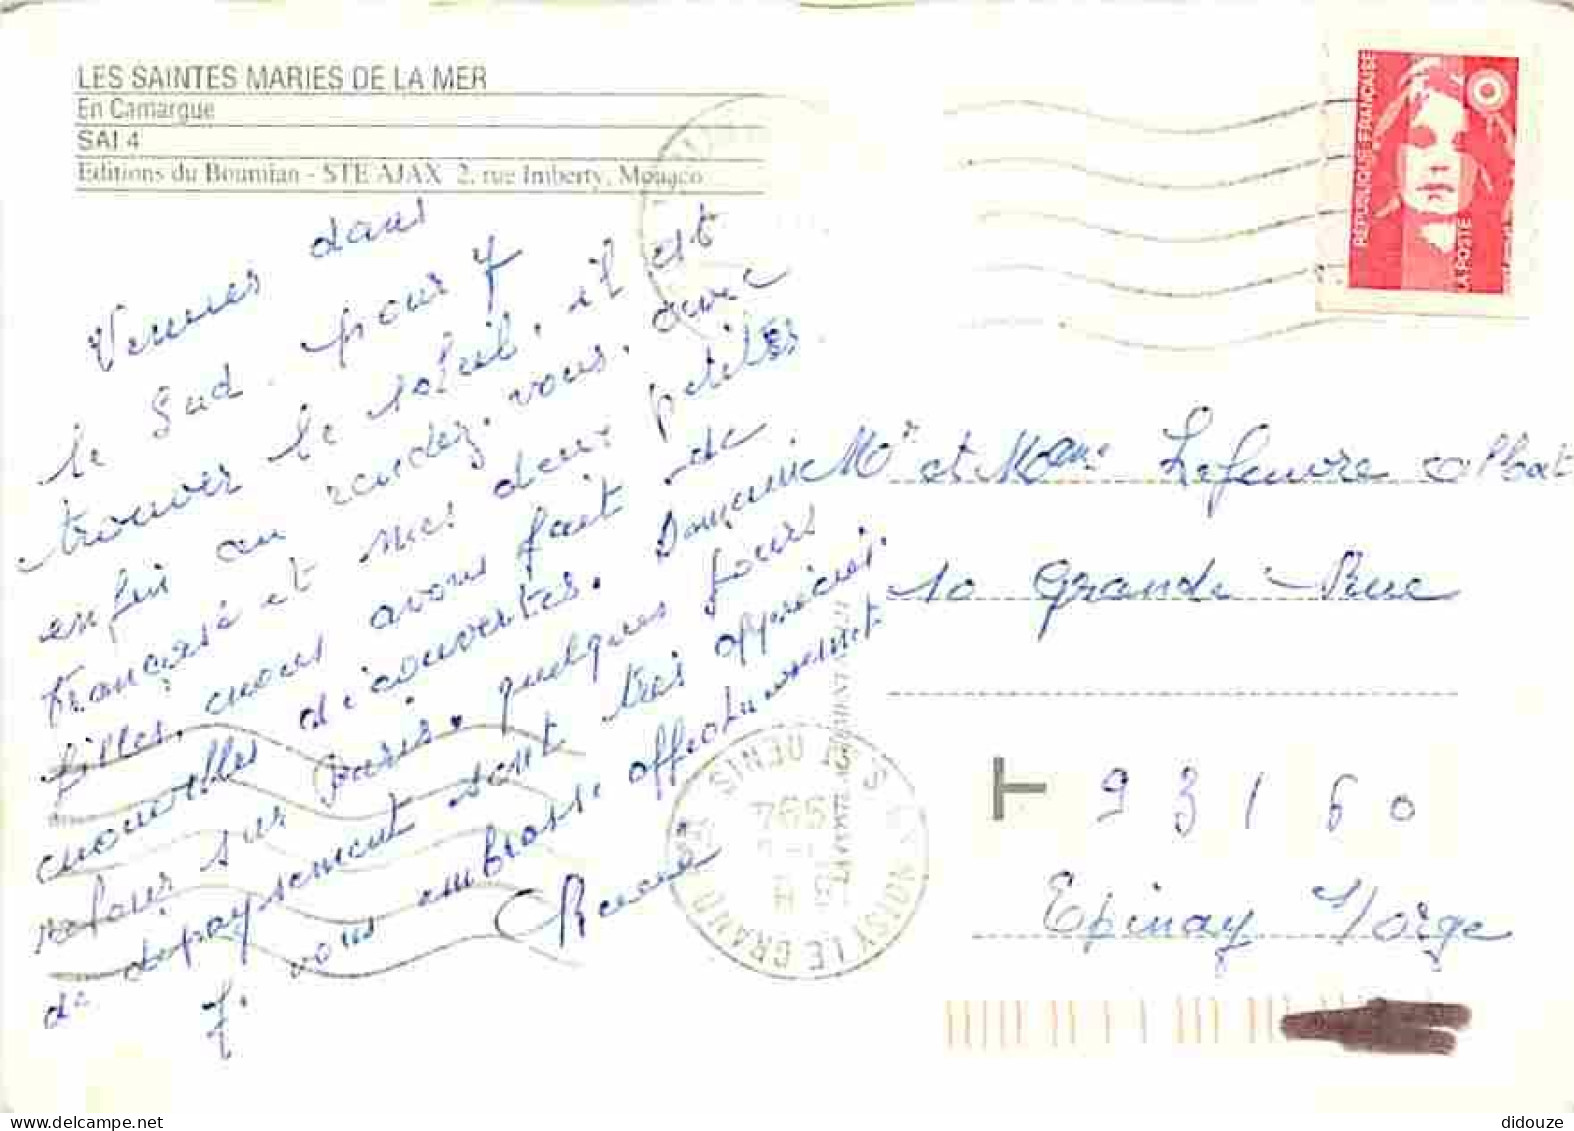 LES SAINTES MARIES DE LA MER
En Camargue
SAI 4
Editions du Boumian - STE AJAX 2, rue Imberty, Monaco
RÉPUBLIQUE FRANÇAISE
LA POSTE
Venues dans
le Sud. pour y
trouver le soleil, il est
enfin au rendez. vous. avec
Françoise et mes deux petites
filles, nous avons fait de
nouvelles découvertes. Domenine
retour sur Paris. quelques jours
de dépaysement sont très appréciés.
J. vous embrasse affectueusement
Renée
Mr et Mme Lefeuvre Albat
10 Grande Rue
93160
Epinay S/orge
NOISY LE GRAND
ST DENIS
didouze